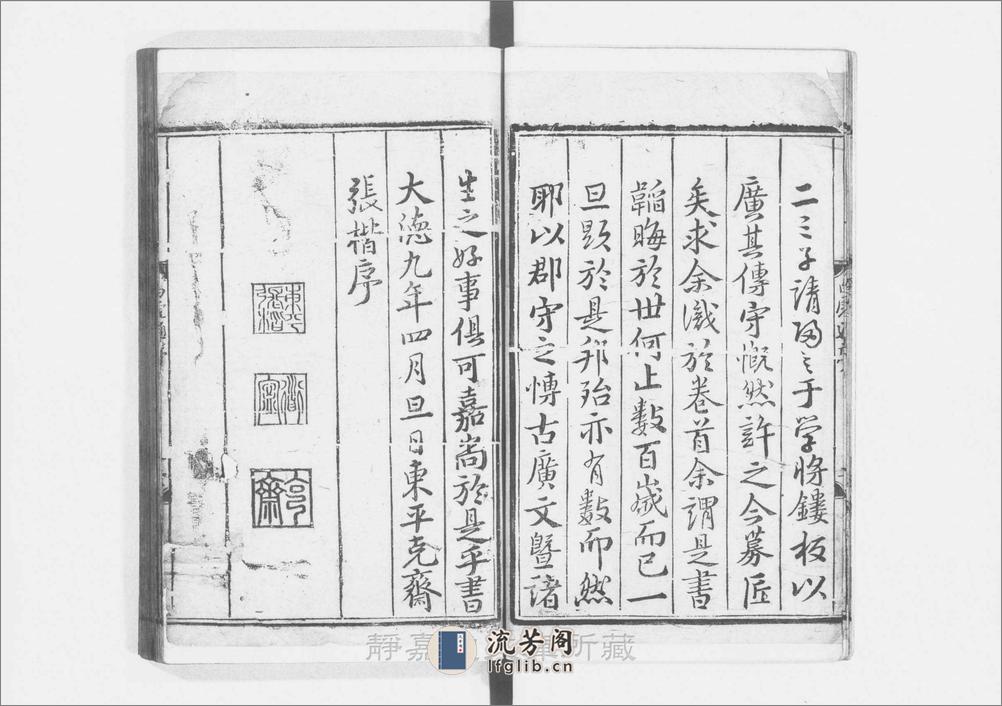 二三子請歸之于学將鏤板以
廣其傳守慨然許之今募匠
矣求余識於卷首余謂是書
韜晦於世何止數百歲而已一
旦顯於是邦殆亦有數而然
耶以郡守之愽古廣文曁諸
生之好事俱可嘉尚於是乎書
大德九年四月旦日東平克齋
張楷序
東平張楷
克齋
靜嘉 所藏
流芳阁
lfglib.cn